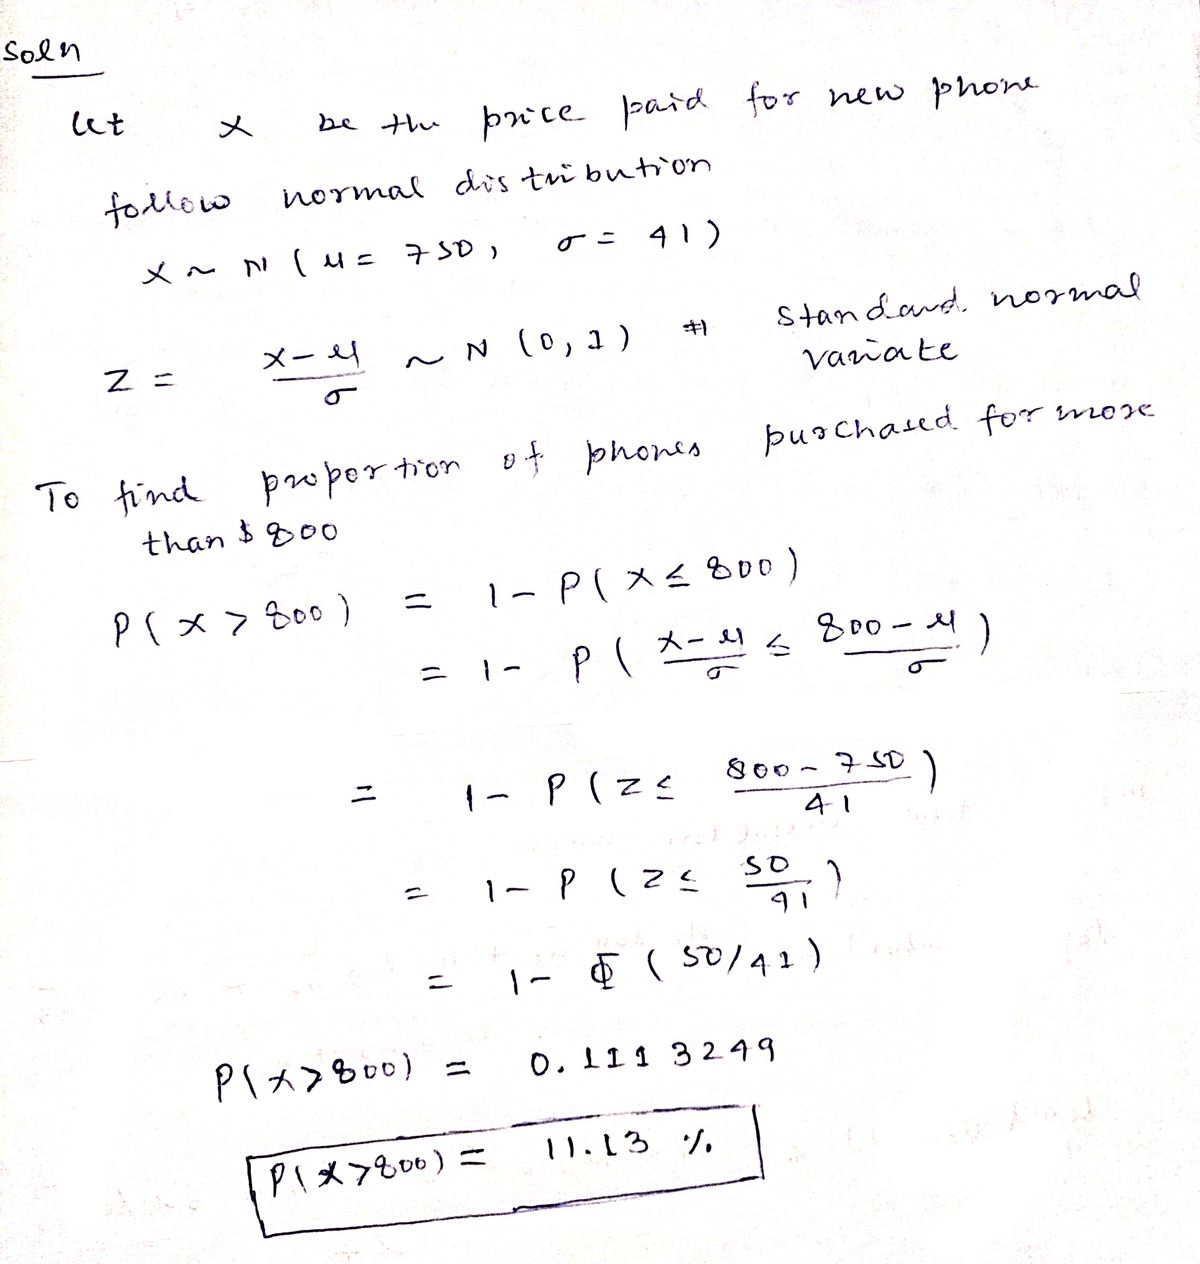 Soln
let x be the price paid for new phone
follow normal distribution
x ~ N ( μ = 750, σ = 41 )
Z = (x-μ)/σ ~ N (0, 1) # standard normal
variate
To find proportion of phones purchased for more
than $ 800
P( x > 800 ) = 1 - P( x ≤ 800 )
= 1 - P ( (x-μ)/σ ≤ (800-μ)/σ )
= 1 - P ( Z ≤ (800-750)/41 )
= 1 - P ( Z ≤ 50/41 )
= 1 - Φ ( 50/41 )
P(x>800) = 0.1113249
P(x>800) = 11.13 %